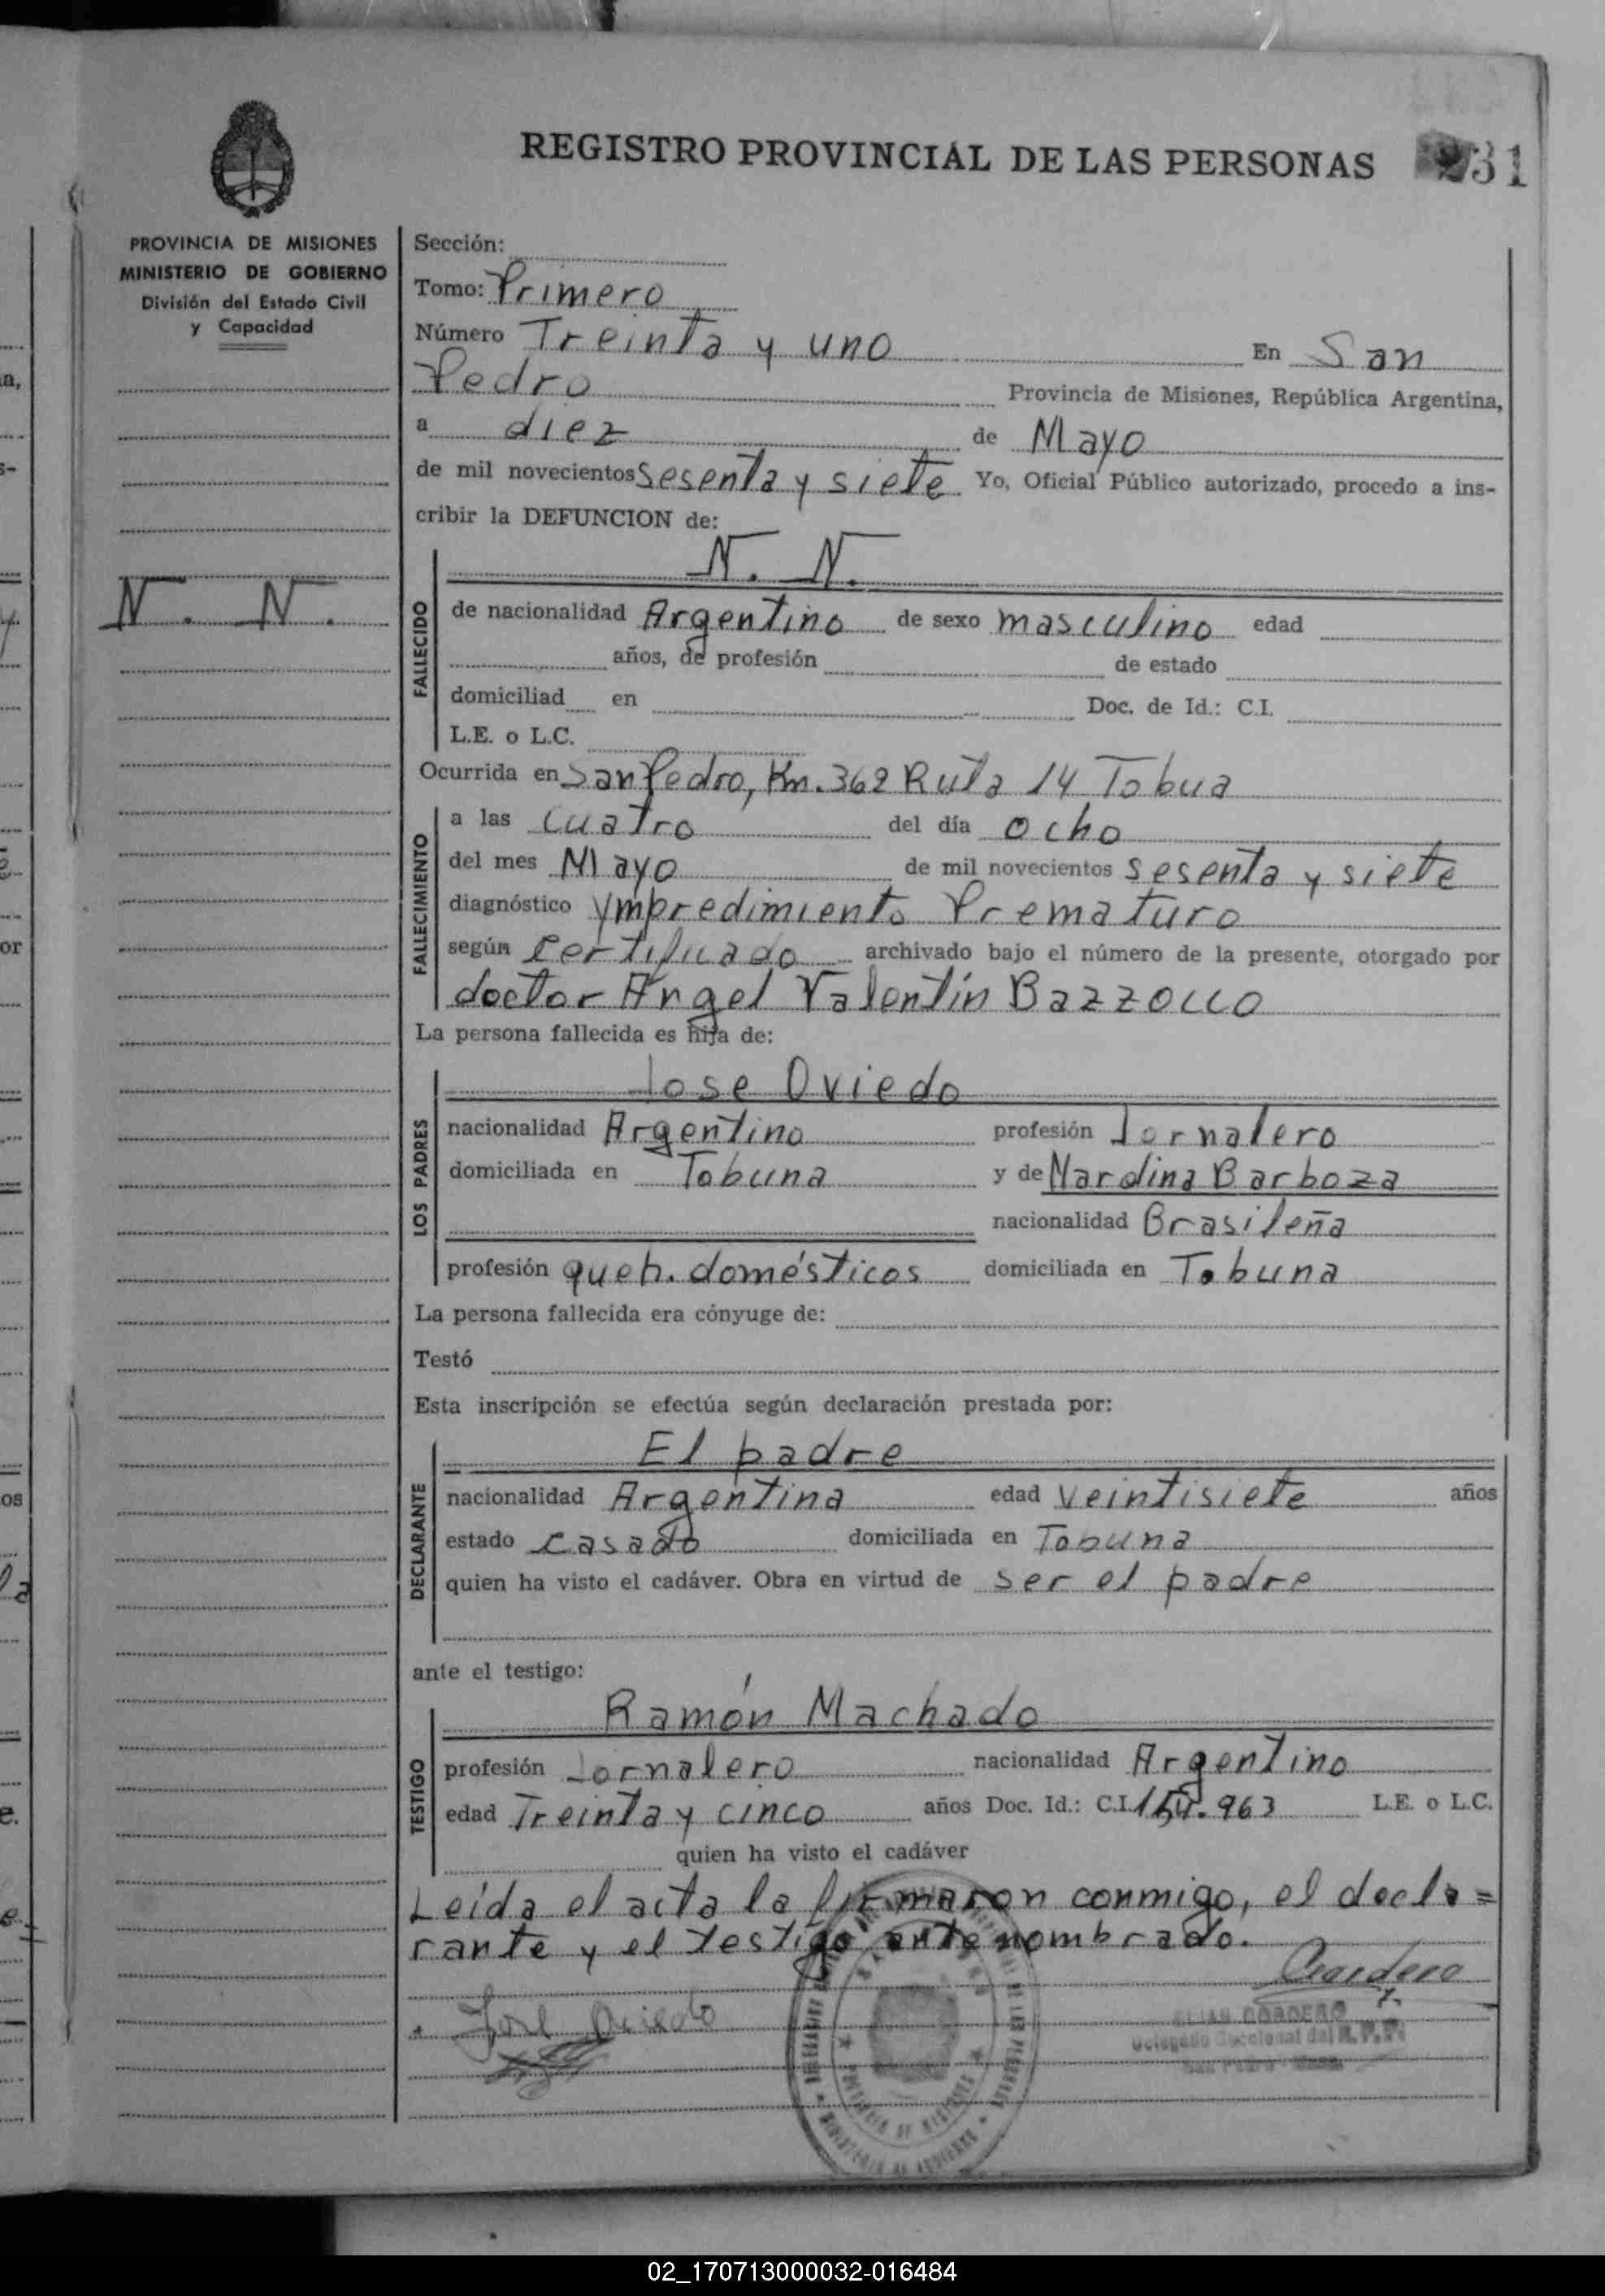 REGISTRO PROVINCIAL DE LAS PERSONAS 31
PROVINCIA DE MISIONES
MINISTERIO DE GOBIERNO
División del Estado Civil
y Capacidad
N. N.
Sección:
Tomo: Primero
Número Treinta y uno En San
Pedro Provincia de Misiones, República Argentina,
a diez de Mayo
de mil novecientos sesenta y siete Yo, Oficial Público autorizado, procedo a ins-
cribir la DEFUNCION de:
N. N.
FALLECIDO
de nacionalidad Argentino de sexo masculino edad
años, de profesión de estado
domiciliad en Doc. de Id.: C.I.
L.E. o L.C.
Ocurrida en San Pedro, Km. 362 Ruta 14 Tobua
FALLECIMIENTO
a las cuatro del día ocho
del mes Mayo de mil novecientos sesenta y siete
diagnóstico Ympredimiento Prematuro
según certificado archivado bajo el número de la presente, otorgado por
doctor Angel Valentín Bazzocco
La persona fallecida es hija de:
Jose Oviedo
LOS PADRES
nacionalidad Argentino profesión Jornalero
domiciliada en Tobuna y de Mardina Barboza
nacionalidad Brasileña
profesión queh. domésticos domiciliada en Tobuna
La persona fallecida era cónyuge de:
Testó
Esta inscripción se efectúa según declaración prestada por:
El padre
DECLARANTE
nacionalidad Argentina edad veintisiete años
estado casado domiciliada en Tobuna
quien ha visto el cadáver. Obra en virtud de ser el padre
ante el testigo:
Ramón Machado
TESTIGO
profesión Jornalero nacionalidad Argentino
edad Treinta y cinco años Doc. Id.: C.I. 154.963 L.E. o L.C.
quien ha visto el cadáver
Leída el acta la firmaron conmigo, el decla=
rante y el testigo antenombrado.
Cordero
José Oviedo
ELIAS CORDERO
Delegado Seccional del R.P.P.
San Pedro
PROVINCIA DE MISIONES
02_170713000032-016484